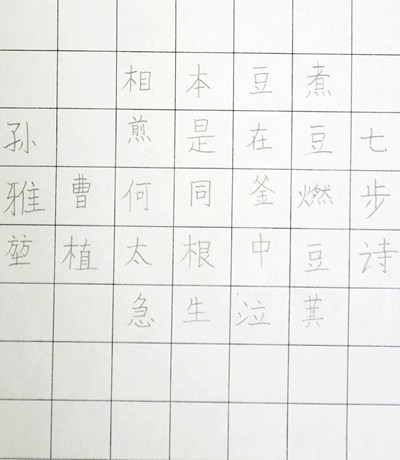 七步诗
煮豆燃豆萁
豆在釜中泣
本是同根生
相煎何太急
曹植
孙雅堃